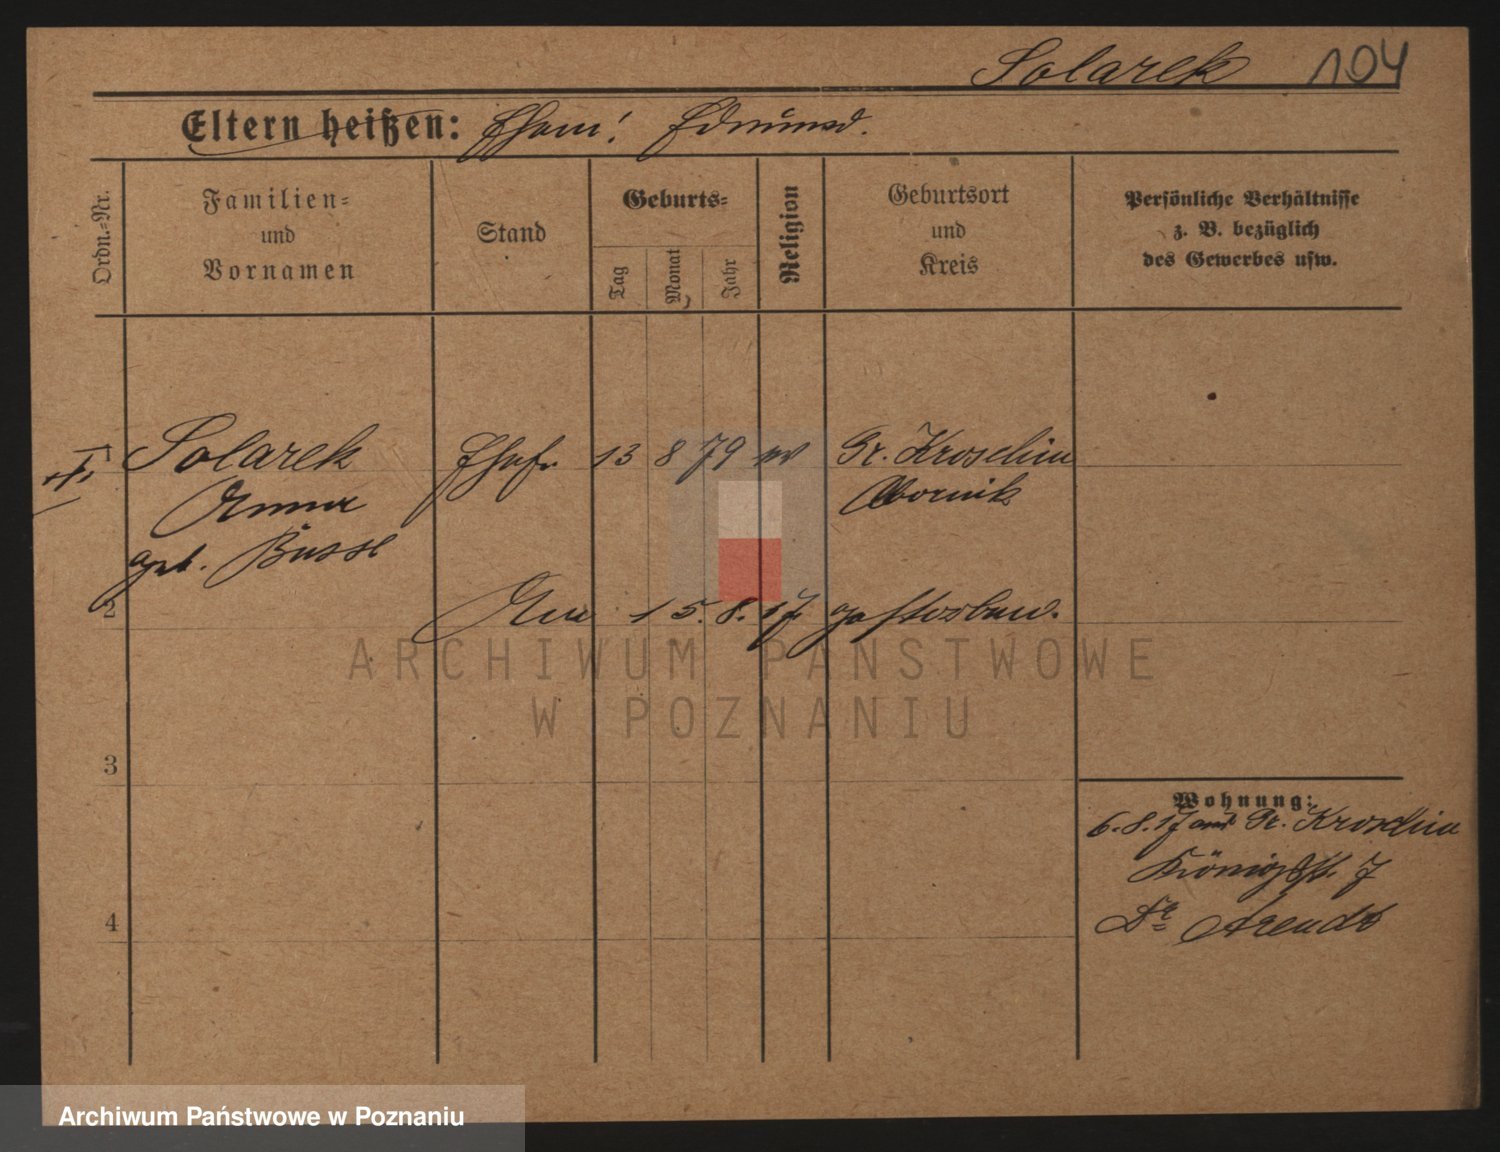 Solarek 104
Eltern heißen: Ehem! Edmund.
Ordn.-Nr.
Familien-
und
Vornamen
Stand
Geburts-
Tag
Monat
Jahr
Religion
Geburtsort
und
Kreis
Persönliche Verhältnisse
z. B. bezüglich
des Gewerbes usw.
Solarek Ehefr. 13 8 79 ev Gr. Kroschin
Anna Obornik
geb. Busse
2 Am 15. 8. 17 gestorben.
3
4
Wohnung:
6. 8. 17 aus Gr. Kroschin
Königstr. 7
Arendt
ARCHIWUM PAŃSTWOWE
W POZNANIU
Archiwum Państwowe w Poznaniu